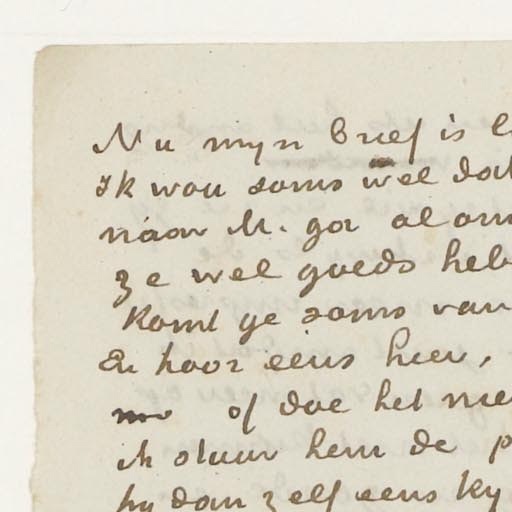 Nu mijn brief is
Ik wou soms wel dat
naar M. gaa al om
ze wel goeds heb
Komt ge soms van
En hoor eens hier,
of doe het
ik stuur hem de p
hy dan zelf eens ky